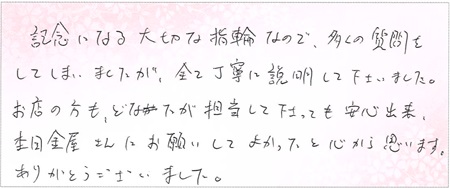 記念になる大切な指輪なので、多くの質問を
してしまいましたが、全て丁寧に説明して下さいました。
お店の方も、どなたが担当して下さっても安心出来、
杢目金屋さんにお願いしてよかったと心から思います。
ありがとうございました。